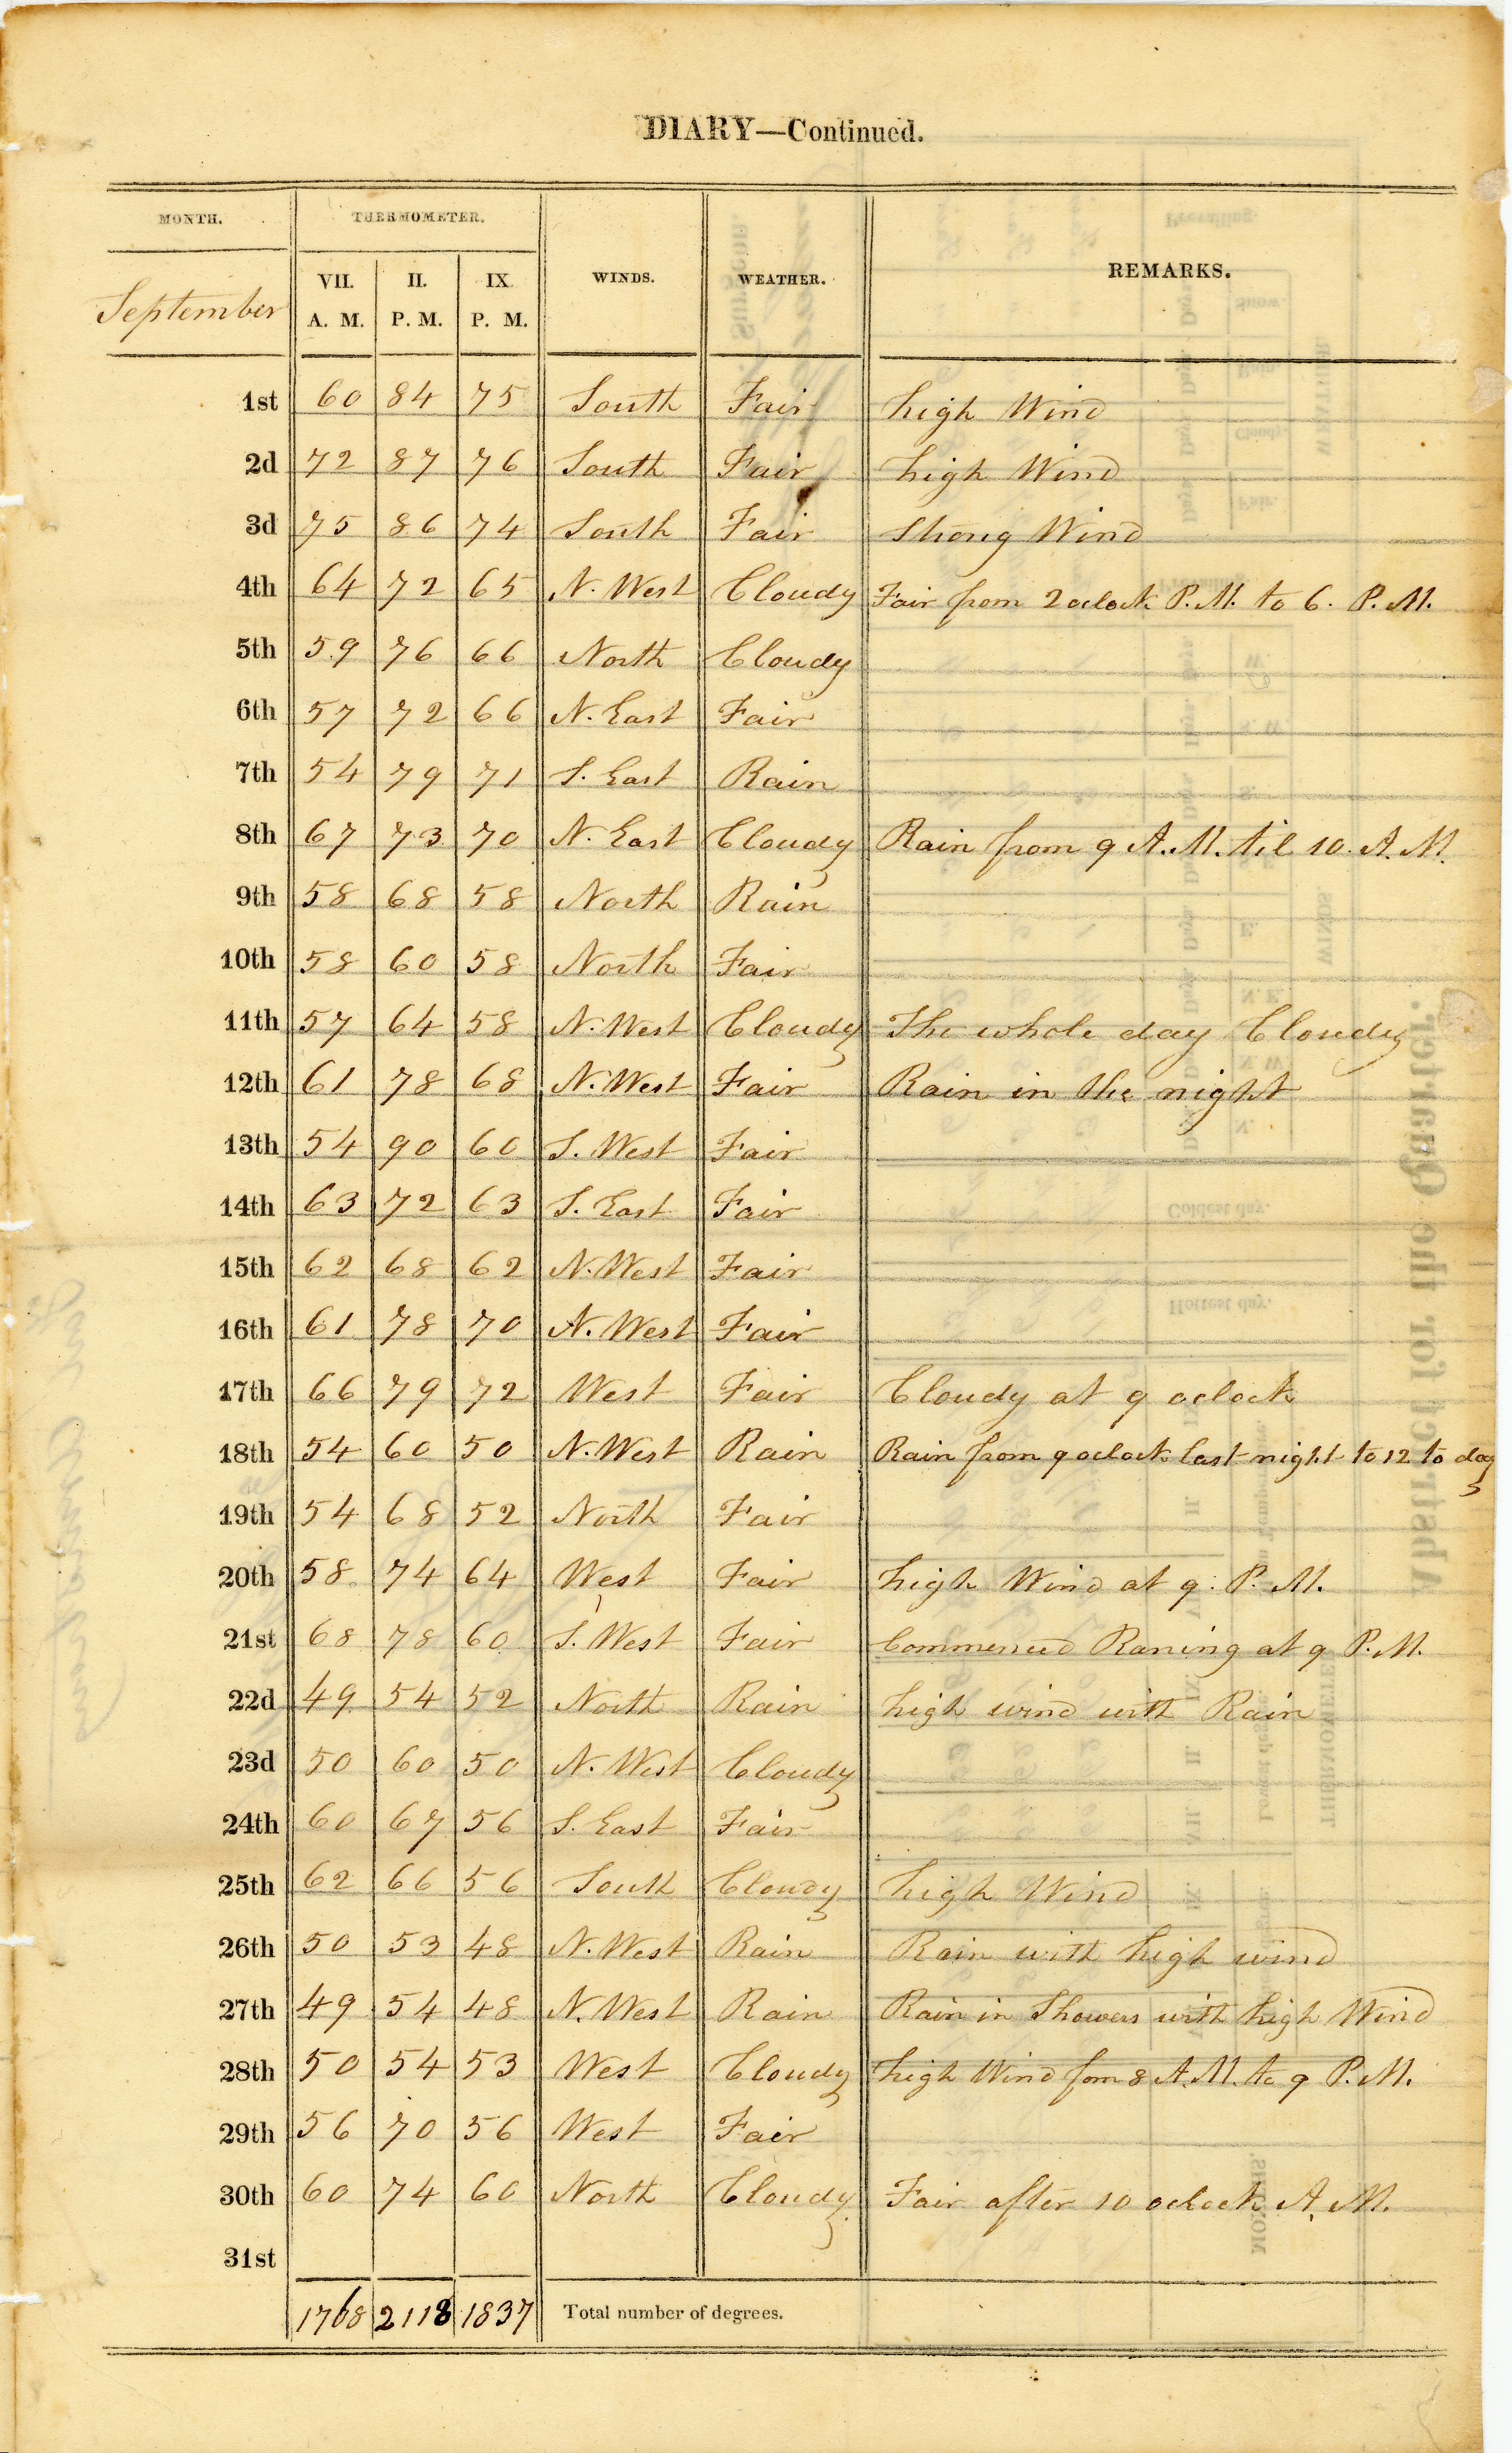 DIARY—Continued.
MONTH. THERMOMETER. WINDS. WEATHER. REMARKS.
September VII. A. M. II. P. M. IX. P. M.
1st 60 84 75 South Fair high Wind
2d 72 87 76 South Fair high Wind
3d 75 86 74 South Fair Strong Wind
4th 64 72 65 N. West Cloudy Fair from 2 oclock P.M. to 6. P.M.
5th 59 76 66 North Cloudy
6th 57 72 66 N. East Fair
7th 54 79 71 S. East Rain
8th 67 73 70 N. East Cloudy Rain from 9 A.M. til 10. A.M.
9th 58 68 58 North Rain
10th 58 60 58 North Fair
11th 57 64 58 N. West Cloudy The whole day Cloudy
12th 61 78 68 N. West Fair Rain in the night
13th 54 90 60 S. West Fair
14th 63 72 63 S. East Fair
15th 62 68 62 N. West Fair
16th 61 78 70 N. West Fair
17th 66 79 72 West Fair Cloudy at 9 oclock
18th 54 60 50 N. West Rain Rain from 9 oclock last night to 12 to day
19th 54 68 52 North Fair
20th 58 74 64 West Fair high Wind at 9. P.M.
21st 68 78 60 S. West Fair Commenced Raning at 9 P.M.
22d 49 54 52 North Rain high wind with Rain
23d 50 60 50 N. West Cloudy
24th 60 67 56 S. East Fair
25th 62 66 56 South Cloudy high Wind
26th 50 53 48 N. West Rain Rain with high wind
27th 49 54 48 N. West Rain Rain in Showers with high Wind
28th 50 54 53 West Cloudy high Wind fom 8 A.M. to 9 P.M.
29th 56 70 56 West Fair
30th 60 74 60 North Cloudy Fair after 10 oclock A.M.
31st
1768 2118 1837 Total number of degrees.